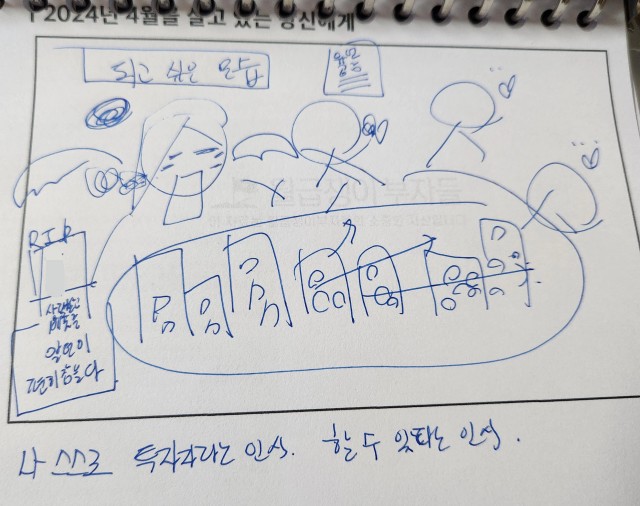 2024년 4월을 살고 있는 당신에게
되고 싶은 모습
R.I.P
사랑받고
편히 잠들다
나 스스로 투자자라는 인식. 할 수 있다는 인식.